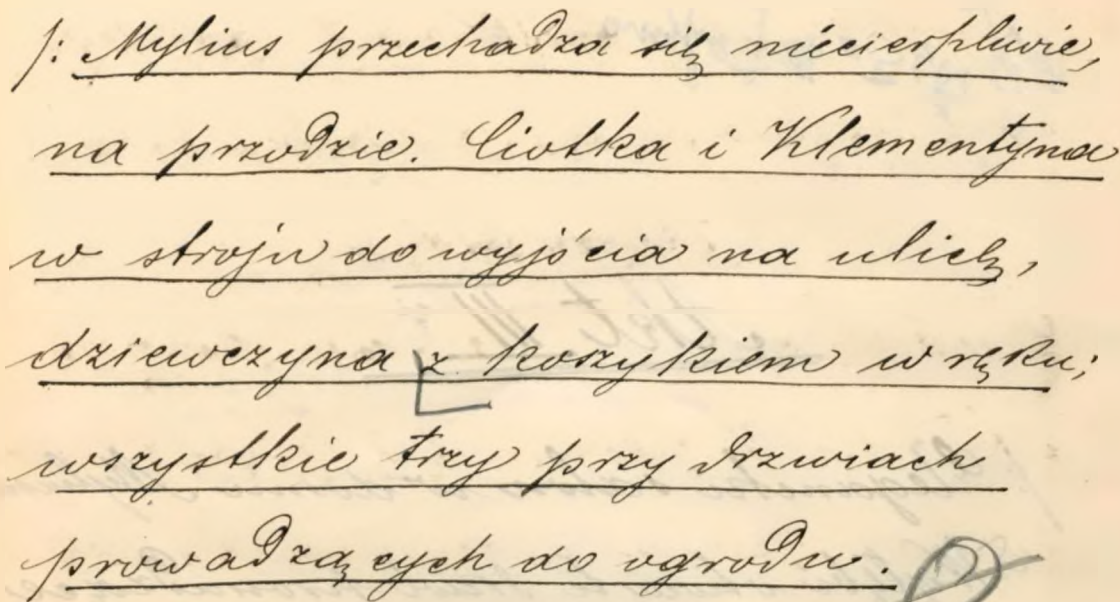 /: Mylius przechadza się niecierpliwie,
na przodzie. Ciotka i Klementyna
w stroju do wyjścia na ulicę,
dziewczyna z koszykiem w ręku;
wszystkie trzy przy drzwiach
prowadzących do ogrodu.